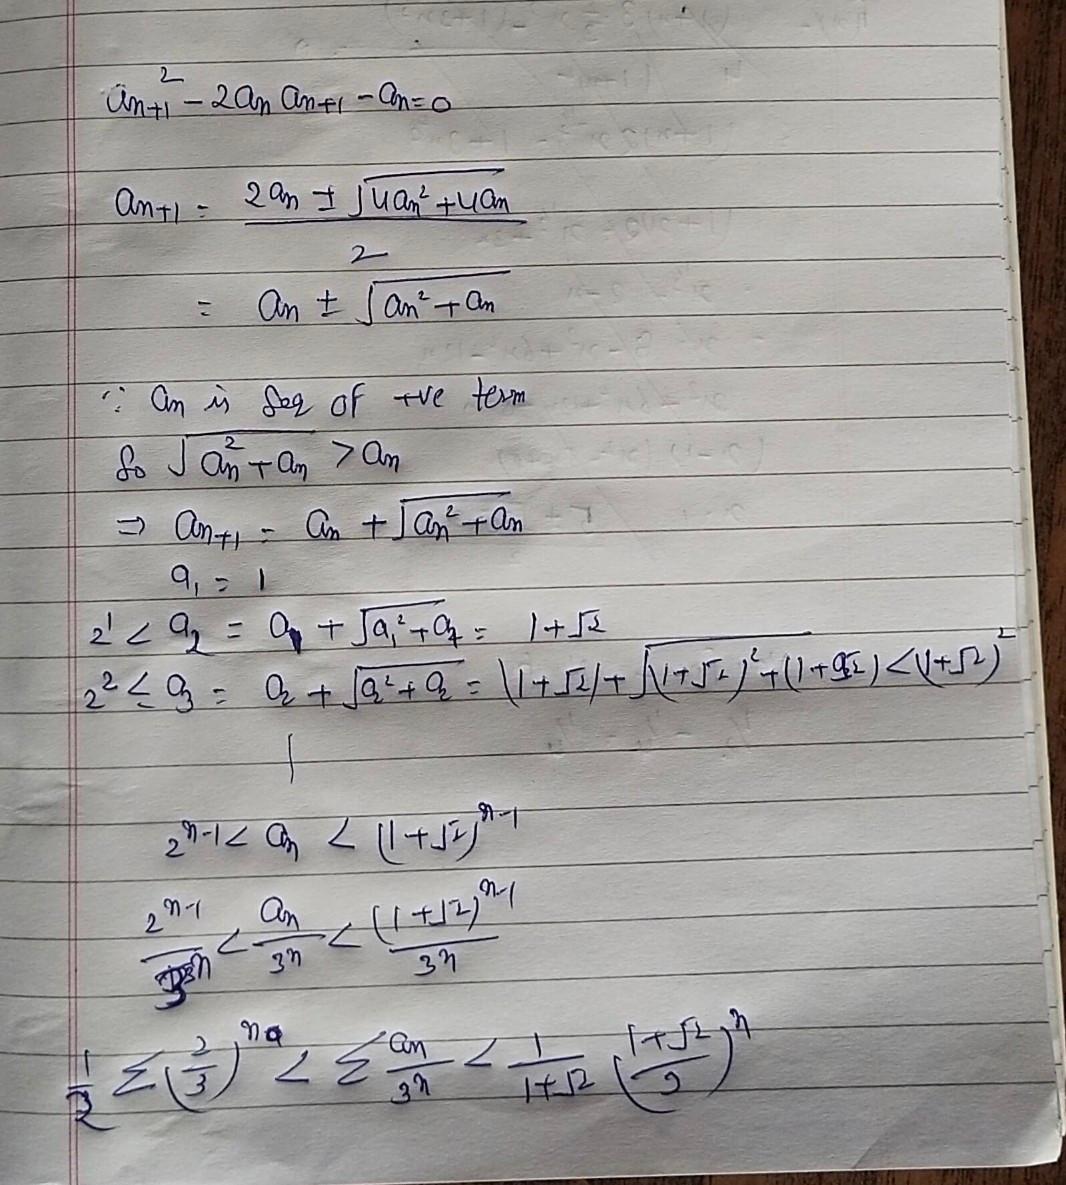 aₙ₊₁² - 2aₙ aₙ₊₁ - aₙ = 0
aₙ₊₁ = (2aₙ ± √(4aₙ² + 4aₙ)) / 2
= aₙ ± √(aₙ² + aₙ)
∵ aₙ is Seq of +ve term
So √(aₙ² + aₙ) > aₙ
⇒ aₙ₊₁ = aₙ + √(aₙ² + aₙ)
a₁ = 1
2¹ < a₂ = a₁ + √(a₁² + a₁) = 1+√2
2² ≤ a₃ = a₂ + √(a₂² + a₂) = (1+√2) + √((1+√2)² + (1+√2)) < (1+√2)²
|
2ⁿ⁻¹ < aₙ < (1+√2)ⁿ⁻¹
2ⁿ⁻¹/3ⁿ < aₙ/3ⁿ < (1+√2)ⁿ⁻¹/3ⁿ
1/2 Σ(2/3)ⁿ < Σ aₙ/3ⁿ < 1/(1+√2) ((1+√2)/3)ⁿ